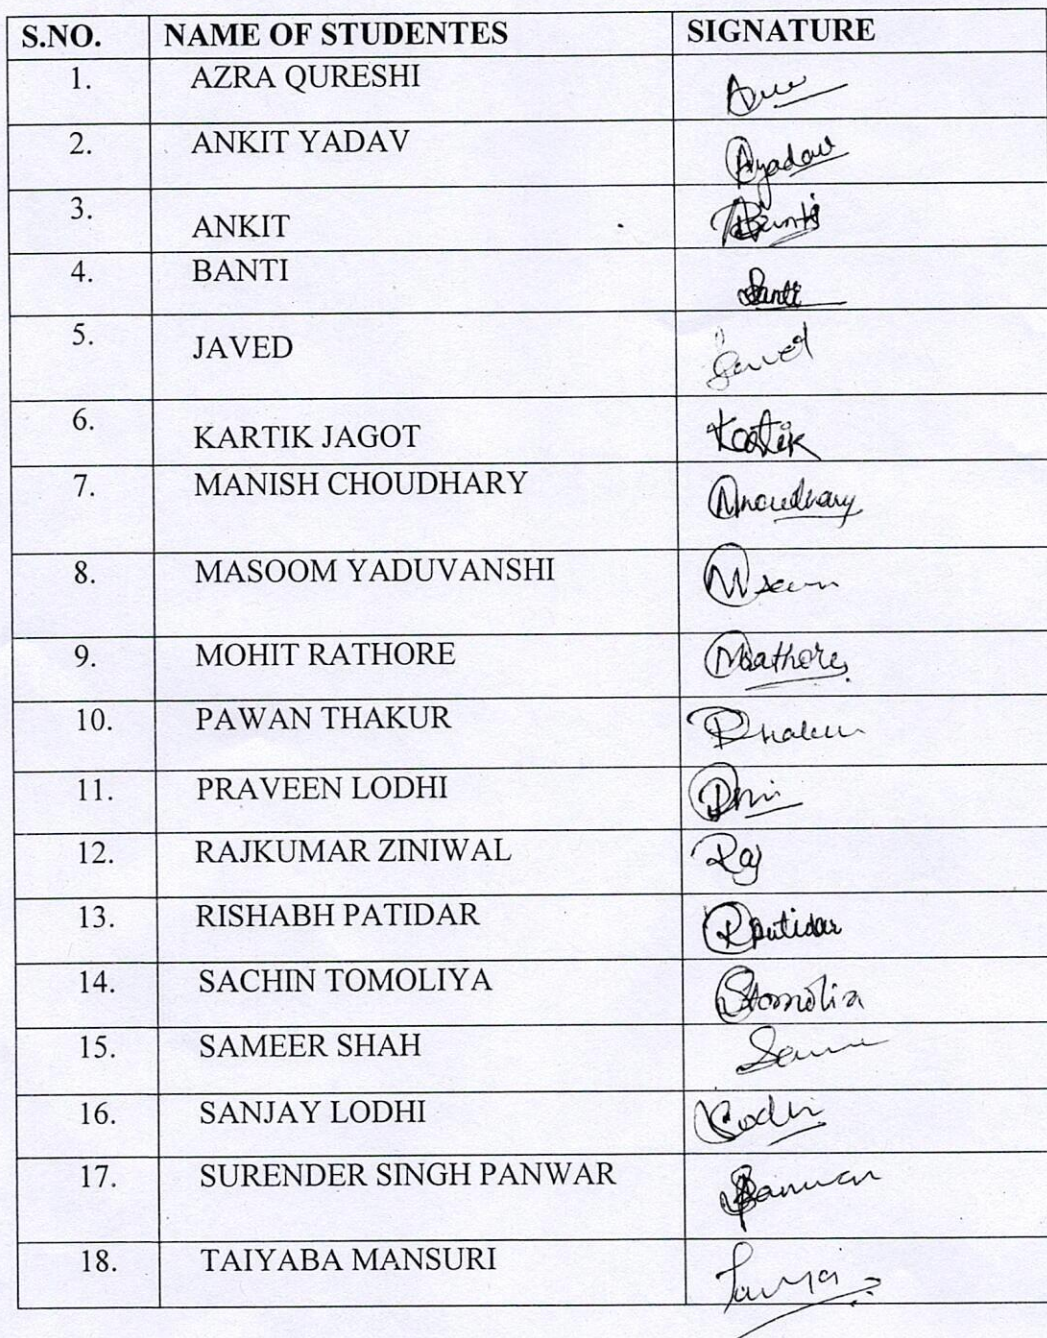 S.NO. NAME OF STUDENTES SIGNATURE
1. AZRA QURESHI
2. ANKIT YADAV Ayadav
3. ANKIT
4. BANTI Banti
5. JAVED Javed
6. KARTIK JAGOT Kartik
7. MANISH CHOUDHARY
8. MASOOM YADUVANSHI
9. MOHIT RATHORE MRathore
10. PAWAN THAKUR
11. PRAVEEN LODHI
12. RAJKUMAR ZINIWAL Raj
13. RISHABH PATIDAR RPatidar
14. SACHIN TOMOLIYA Stomolia
15. SAMEER SHAH
16. SANJAY LODHI
17. SURENDER SINGH PANWAR
18. TAIYABA MANSURI